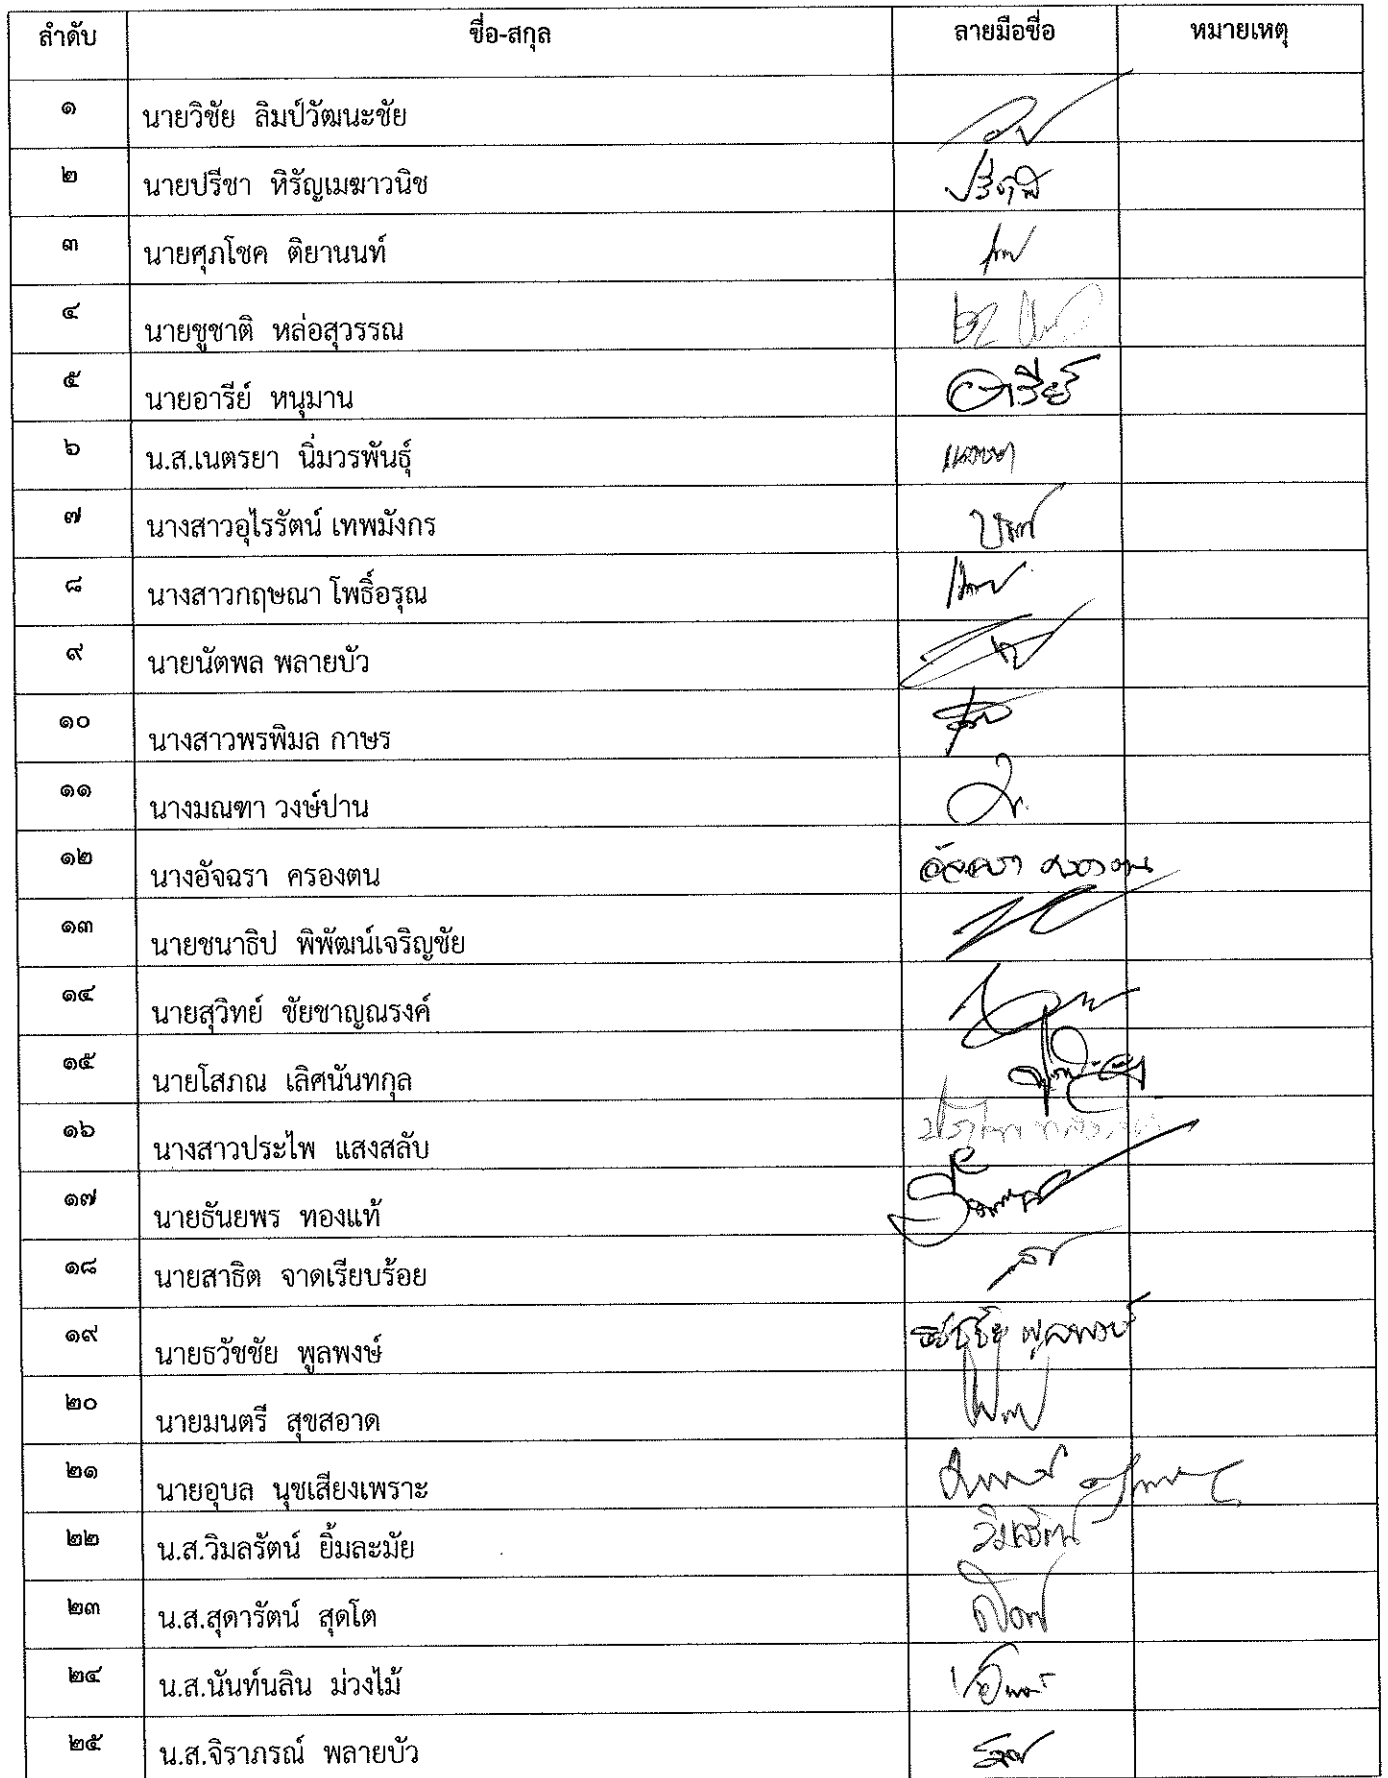 ลำดับ ชื่อ-สกุล ลายมือชื่อ หมายเหตุ
๑ นายวิชัย ลิมป์วัฒนะชัย
๒ นายปรีชา หิรัญเมฆาวนิช
๓ นายศุภโชค ติยานนท์
๔ นายชูชาติ หล่อสุวรรณ
๕ นายอารีย์ หนุมาน อารีย์
๖ น.ส.เนตรยา นิ่มวรพันธุ์
๗ นางสาวอุไรรัตน์ เทพมังกร
๘ นางสาวกฤษณา โพธิ์อรุณ
๙ นายนัตพล พลายบัว
๑๐ นางสาวพรพิมล กาษร
๑๑ นางมณฑา วงษ์ปาน
๑๒ นางอัจฉรา ครองตน อัจฉรา ครองตน
๑๓ นายชนาธิป พิพัฒน์เจริญชัย
๑๔ นายสุวิทย์ ชัยชาญณรงค์
๑๕ นายโสภณ เลิศนันทกุล
๑๖ นางสาวประไพ แสงสลับ
๑๗ นายธันยพร ทองแท้
๑๘ นายสาธิต จาดเรียบร้อย
๑๙ นายธวัชชัย พูลพงษ์ ธวัชชัย พูลพงษ์
๒๐ นายมนตรี สุขสอาด
๒๑ นายอุบล นุชเสียงเพราะ
๒๒ น.ส.วิมลรัตน์ ยิ้มละมัย วิมลรัตน์
๒๓ น.ส.สุดารัตน์ สุดโต
๒๔ น.ส.นันท์นลิน ม่วงไม้
๒๕ น.ส.จิราภรณ์ พลายบัว